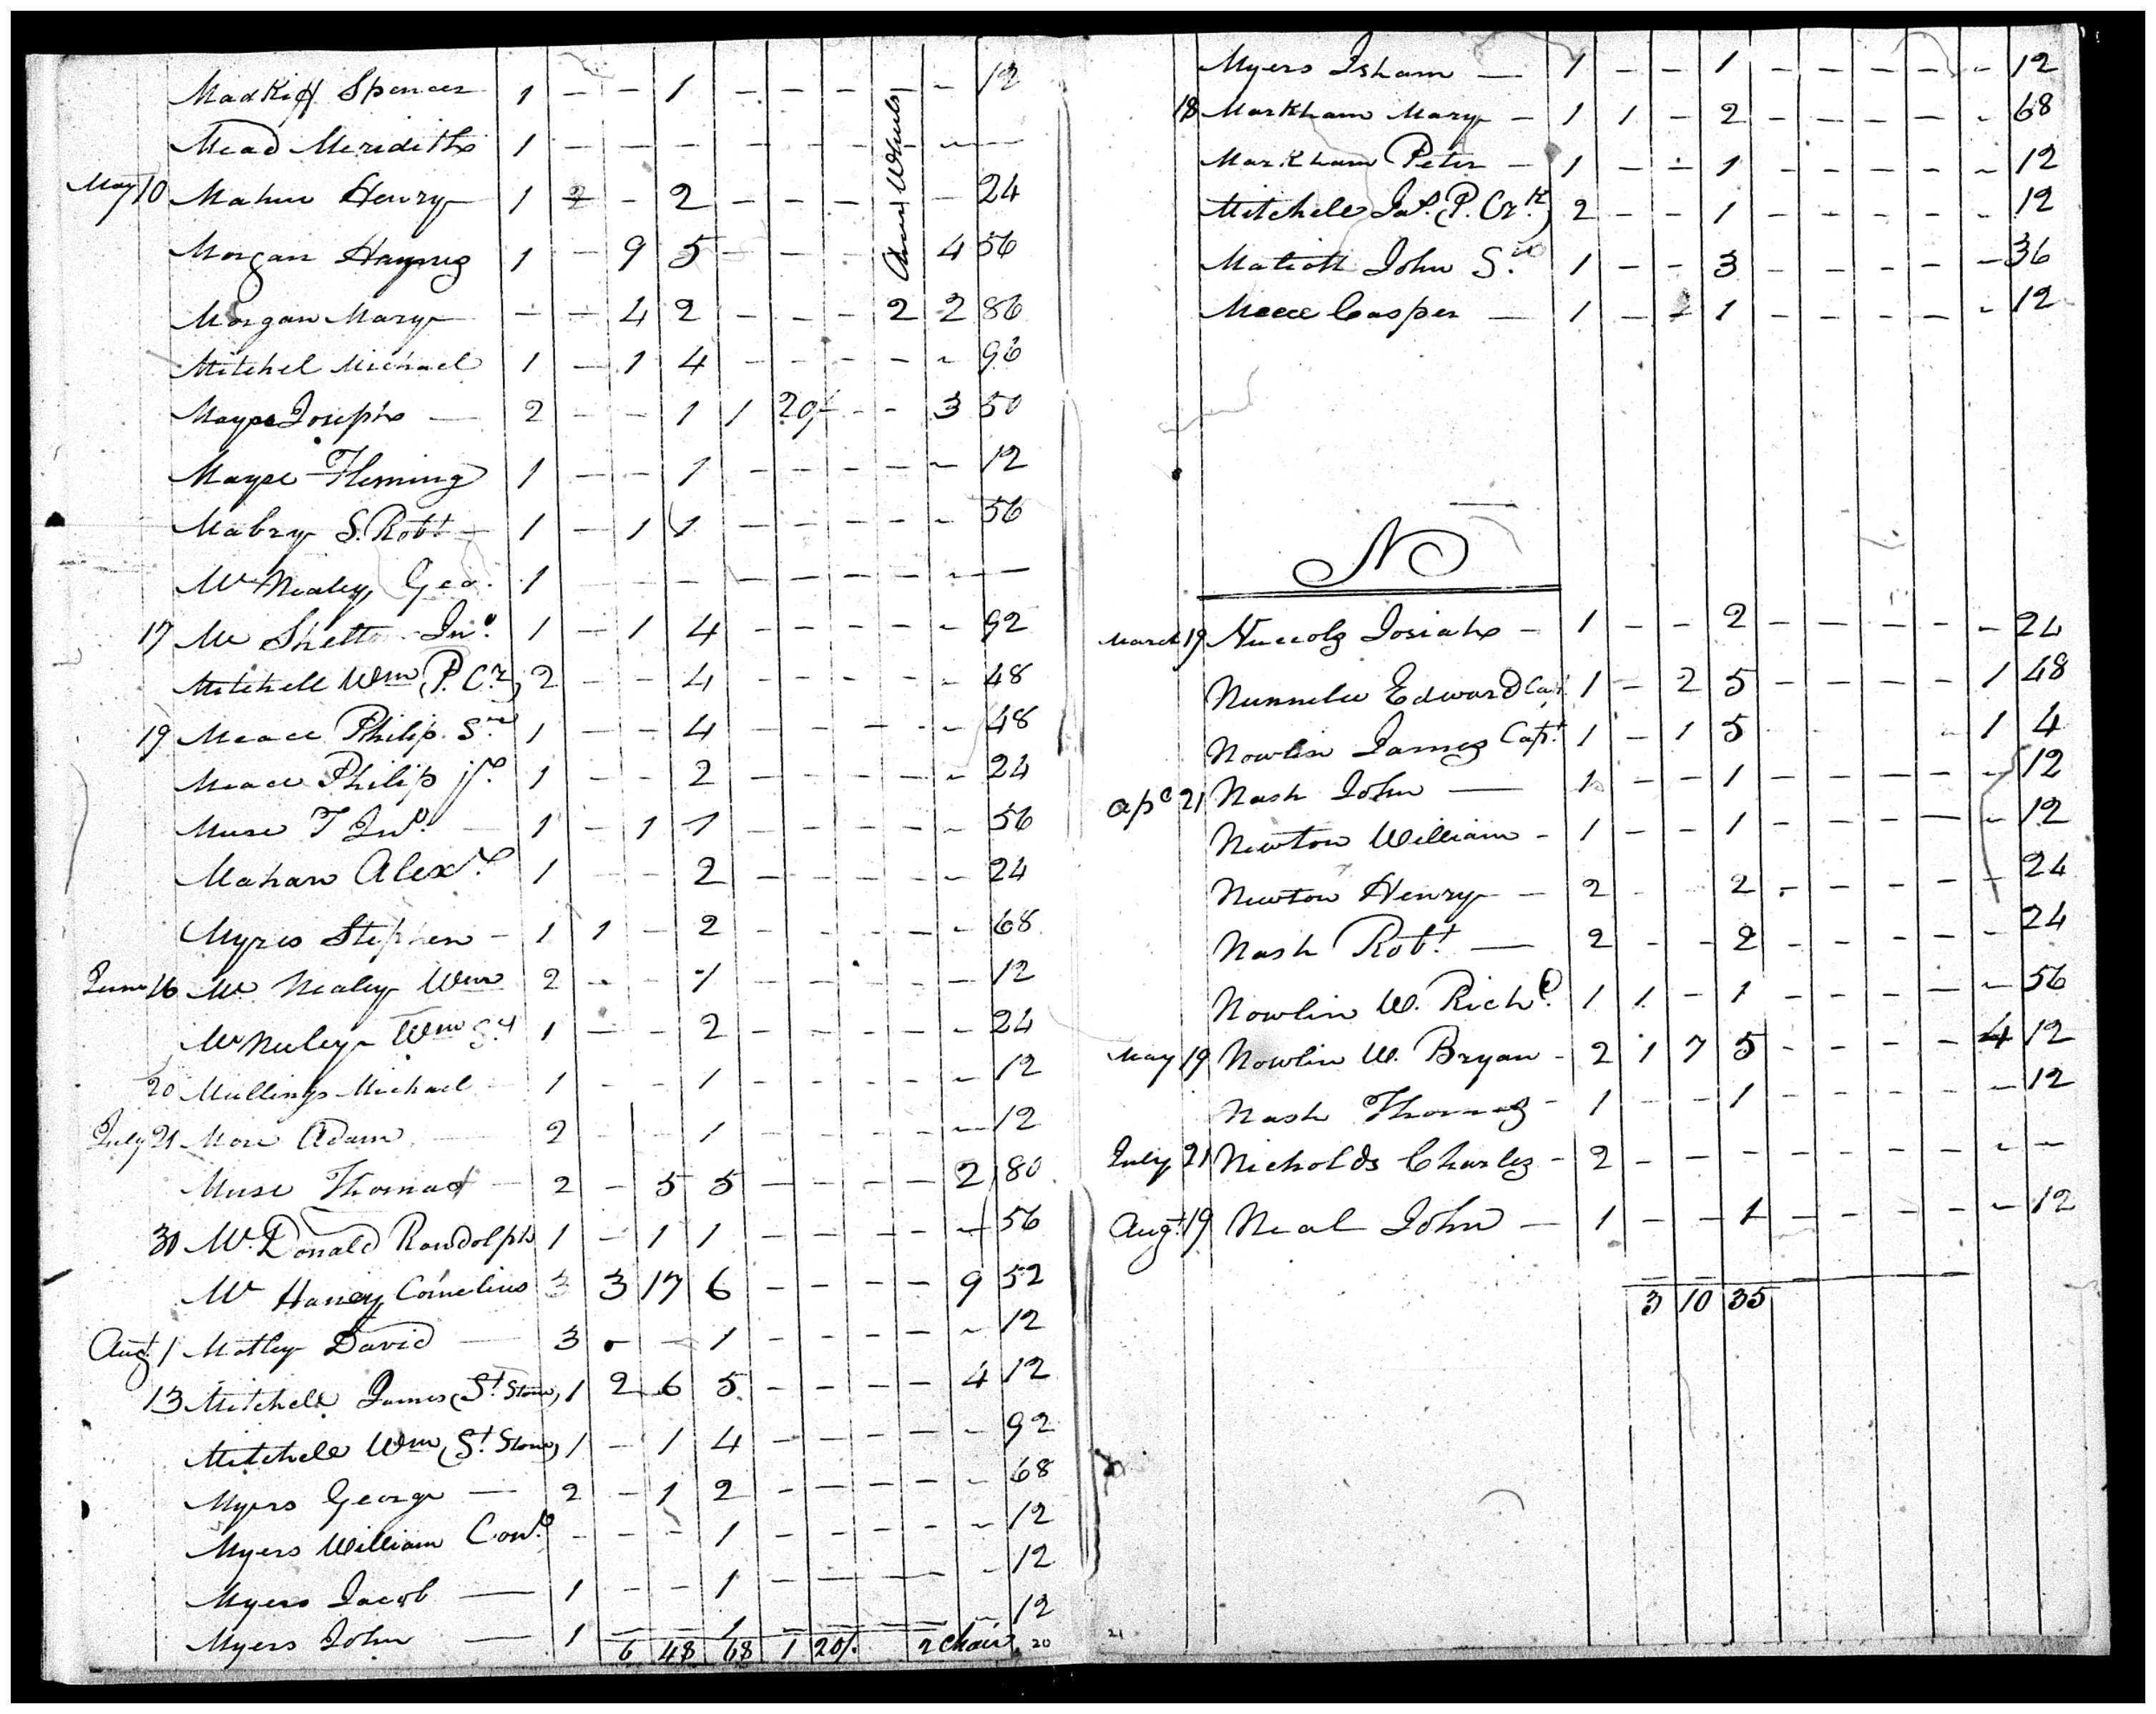 Chair Wheels
Madkiff Spencer 1 – – 1 – – – – 12
Mead Meredith 1 – – – – – – – –
May 10 Mahue Henry 1 2 – 2 – – – – 24
Morgan Haynes 1 – 9 5 – – – 4 56
Morgan Mary – – 4 2 – – – 2 2 86
Mitchel Michael 1 – 1 4 – – – – – 96
Mayse Joseph — 2 – – 1 1 20/ – – 3 50
Mayse Fleming 1 – – 1 – – – – – 12
Mabry S. Robt 1 – 1 1 – – – – – 56
Mc Nealey Geo. 1 – – – – – – – – –
17 Mc Shelton Jno. 1 – 1 4 – – – – – 92
Mitchell Wm (P. Cr.) 2 – – 4 – – – – – 48
19 Meace Philip Sr 1 – – 4 – – – – – 48
Meace Philip jr. 1 – – 2 – – – – – 24
Muse T Jno. 1 – 1 1 – – – – – 56
Mahan Alexr. 1 – – 2 – – – – – 24
Myres Stephen – 1 1 – 2 – – – – – 68
June 16 Mc Nealey Wm 2 – – 1 – – – – – 12
Mc Neeley Wm Sr 1 – – 2 – – – – – 24
20 Mullings Michael 1 – – 1 – – – – – 12
July 21 More Adam 2 – 1 – – – – – 12
Muse Thomas 2 – 5 5 – – – – 2 80
30 Mc Donald Randolph 1 – 1 1 – – – – – 56
Mc Haney Cornelius 3 3 17 6 – – – – 9 52
Augt 1 Motley David — 3 – – 1 – – – – – 12
13 Mitchell James (St. Stone) 1 2 6 5 – – – – 4 12
Mitchell Wm (St. Stone) 1 – 1 4 – – – – – 92
Myers George — 2 – 1 2 – – – – – 68
Myers William Cond – – – 1 – – – – – 12
Myers Jacob — 1 – – 1 – – – – – 12
Myers John — 1 – – 1 – – – – – 12
6 48 68 1 20/. 2 Chair 20
Myers Isham — 1 – – 1 – – – – – 12
18 Markham Mary – 1 1 – 2 – – – – – 68
Markham Peter – 1 – – 1 – – – – – 12
Mitchell Jas. (P. Crk.) 2 – – 1 – – – – – 12
Matiott John Sr. 1 – – 3 – – – – – 36
Meece Casper — 1 – – 1 – – – – – 12
N
March 19 Nuccols Josiah – 1 – – 2 – – – – – 24
Nunnelee Edward Capt. 1 – 2 5 – – – – 1 48
Nowlin James Capt. 1 – 1 5 – 1 4
Apl 21 Nash John — 1 – – 1 – – – – – 12
Newton William – 1 – – 1 – – – – – 12
Newton Henry – 2 – – 2 – – – – – 24
Nash Robt. — 2 – – 2 – – – – – 24
Nowlin W. Richd. 1 1 – 1 – – – – – 56
May 19 Nowlin W. Bryan – 2 1 7 5 – – – – 4 12
Nash Thomas – 1 – – 1 – – – – – 12
July 21 Nicholds Charles – 2 – – – – – – – – –
Augt. 19 Neal John — 1 – – 1 – – – – – 12
3 10 35
21